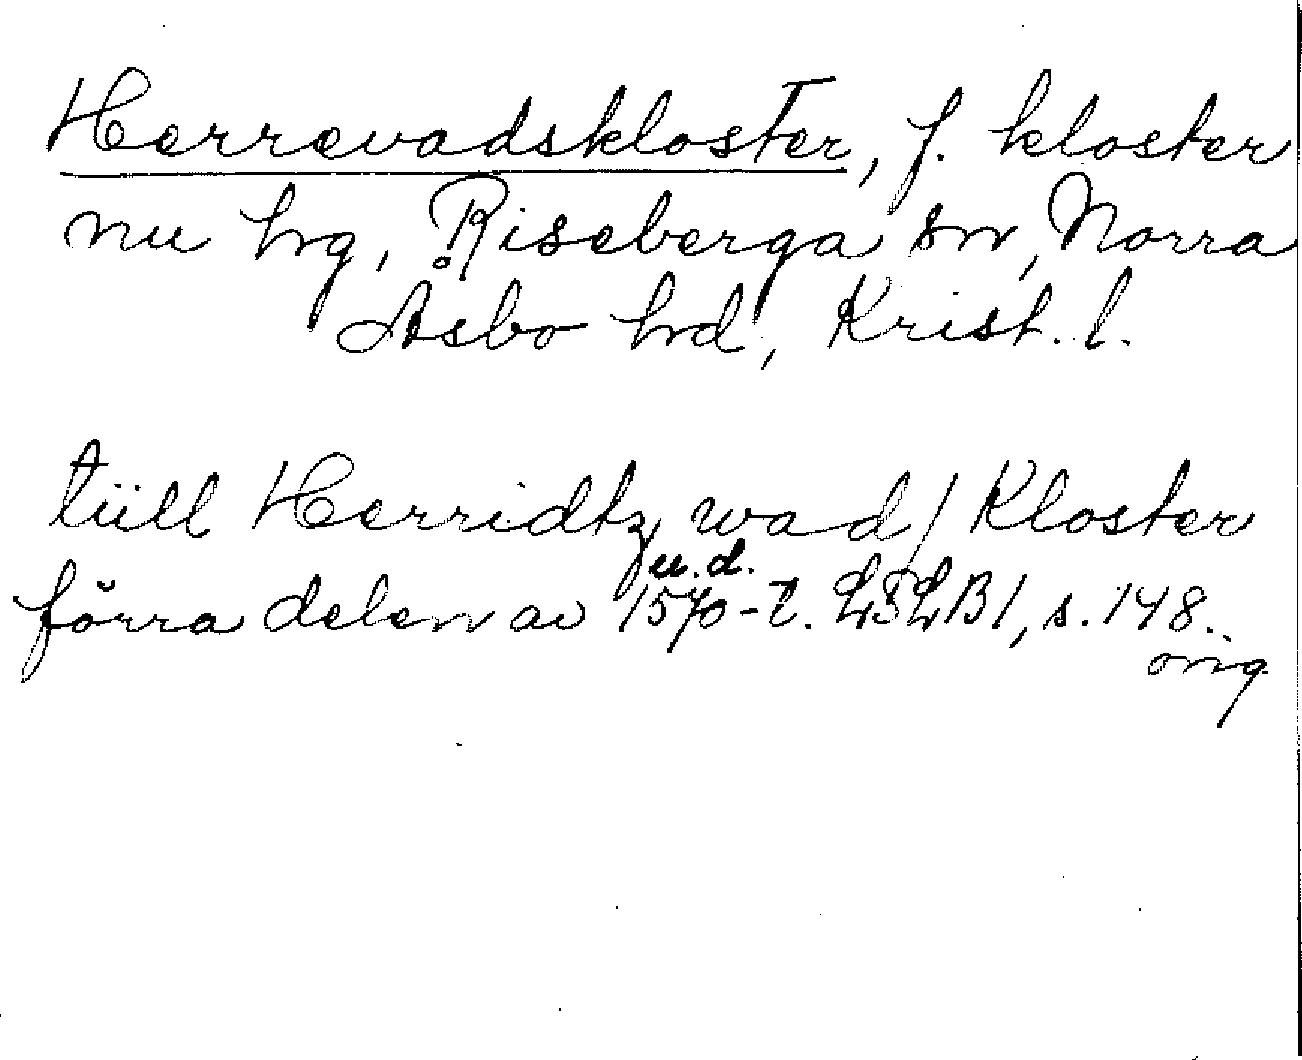 Herrevadskloster, f. kloster
nu hg, Riseberga sn, Norra
Åsbo hd, Krist. l.
tüll Herridtz wad / Kloster
u.d.
förra delen av 1570-t. LSLB1, s. 148.
orig